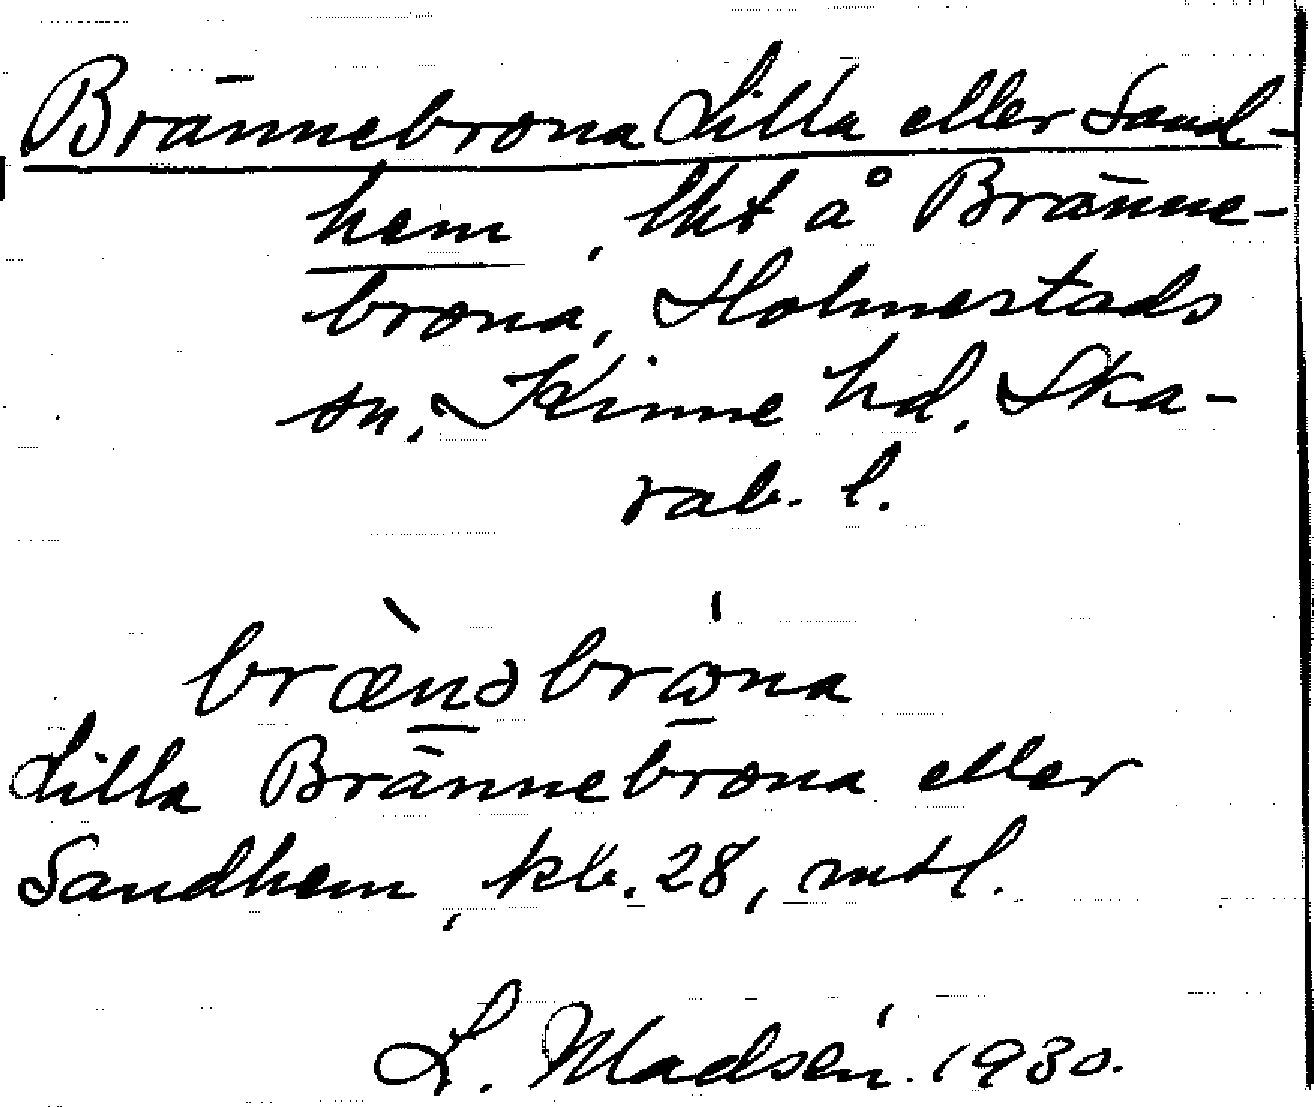 Brännebrona Lilla eller Sand-
hem, lht å Bränne-
brona, Holmestads
sn, Kinne hd. Ska-
rab. l.
bræ̀nəbrω̍na
Lilla Brännebrona eller
Sandhem, kb. 28, mtl.
L. Madsén. 1930.